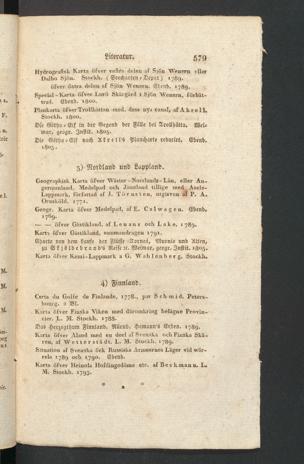 Literatur. 579
Hydrografisk Karta öfver vestra delen af Sjön Wenern eller
Dalbo Sjön. Stockh. (Seecharten-Depot) 1789.
— öfver östra delen af Sjön Wenern. Ebend. 1789.
Special-Karta öfver Lurö Skärgård i Sjön Wenern, förbätt-
rad. Ebend. 1800.
Plankarta öfver Trollhättan med. dess nya canal, af Akrell.
Stockh. 1800.
Die Götha-Elf in der Gegend der Fälle bei Trollhätta. Wei-
mar, geogr. Instit. 1805.
Die Götha-Elf nach Akrells Plancharte reducirt. Ebend.
1805.
3) Nordland und Lappland.
Geographisk Karta öfver Wäster-Norrlands-Län, eller An-
germanland, Medelpad och Jämtland tillige med Asele-
Lappmark, författad af J. Törnsten, utgifven af P. A.
Örnsköld. 1771.
Geogr. Karta öfver Medelpad, af E. Calwagen. Ebend.
1769.
— — öfver Gästikland, af Lenanx och Lake, 1789.
Karta öfver Gästikland, sammandragen 1791.
Charte von dem Laufe der Flüsse Torneå, Muonio und Alten,
zu Skjöldebrands Reise ic. Weimar, geogr. Instit. 1805.
Karta öfver Kemi-Lappmark a G. Wahlenberg. Stockh.
4) Finnland.
Carta du Golfe de Finlande, 1778., par Schmid. Peters-
bourg. 2 Bl.
Karta öfver Finska Viken med däromkring belägne Provin-
cier. L. M. Stockh. 1788.
Das Herzogthum Finnland. Nürnb. Homann's Erben. 1789.
Karta öfver Åland med en deel af Svenska och Finska Skä-
ren, af Wetterstädt. L. M. Stockh. 1789.
Situation af Svenska och Russiska Arméernas Läger vid Wär-
eels 1789 och 1790. Ebend.
Karta öfver Heinola Höfdingedöme etc. af Beckmann. L.
M. Stockh. 1793.